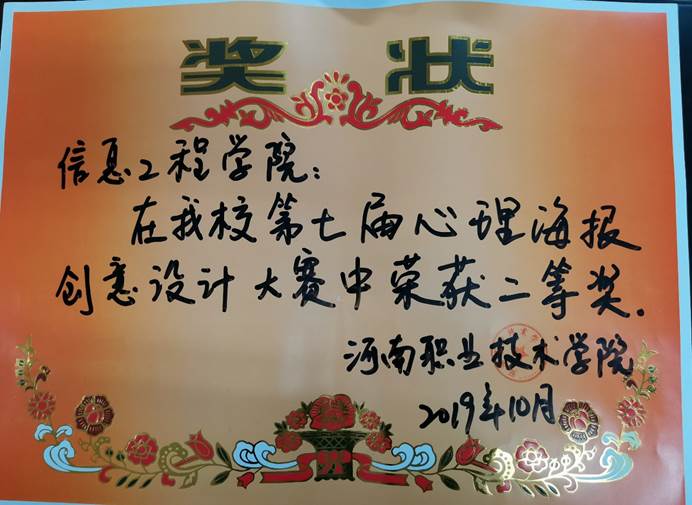 奖状
信息工程学院：
在我校第七届心理海报
创意设计大赛中荣获二等奖.
河南职业技术学院
2019年10月